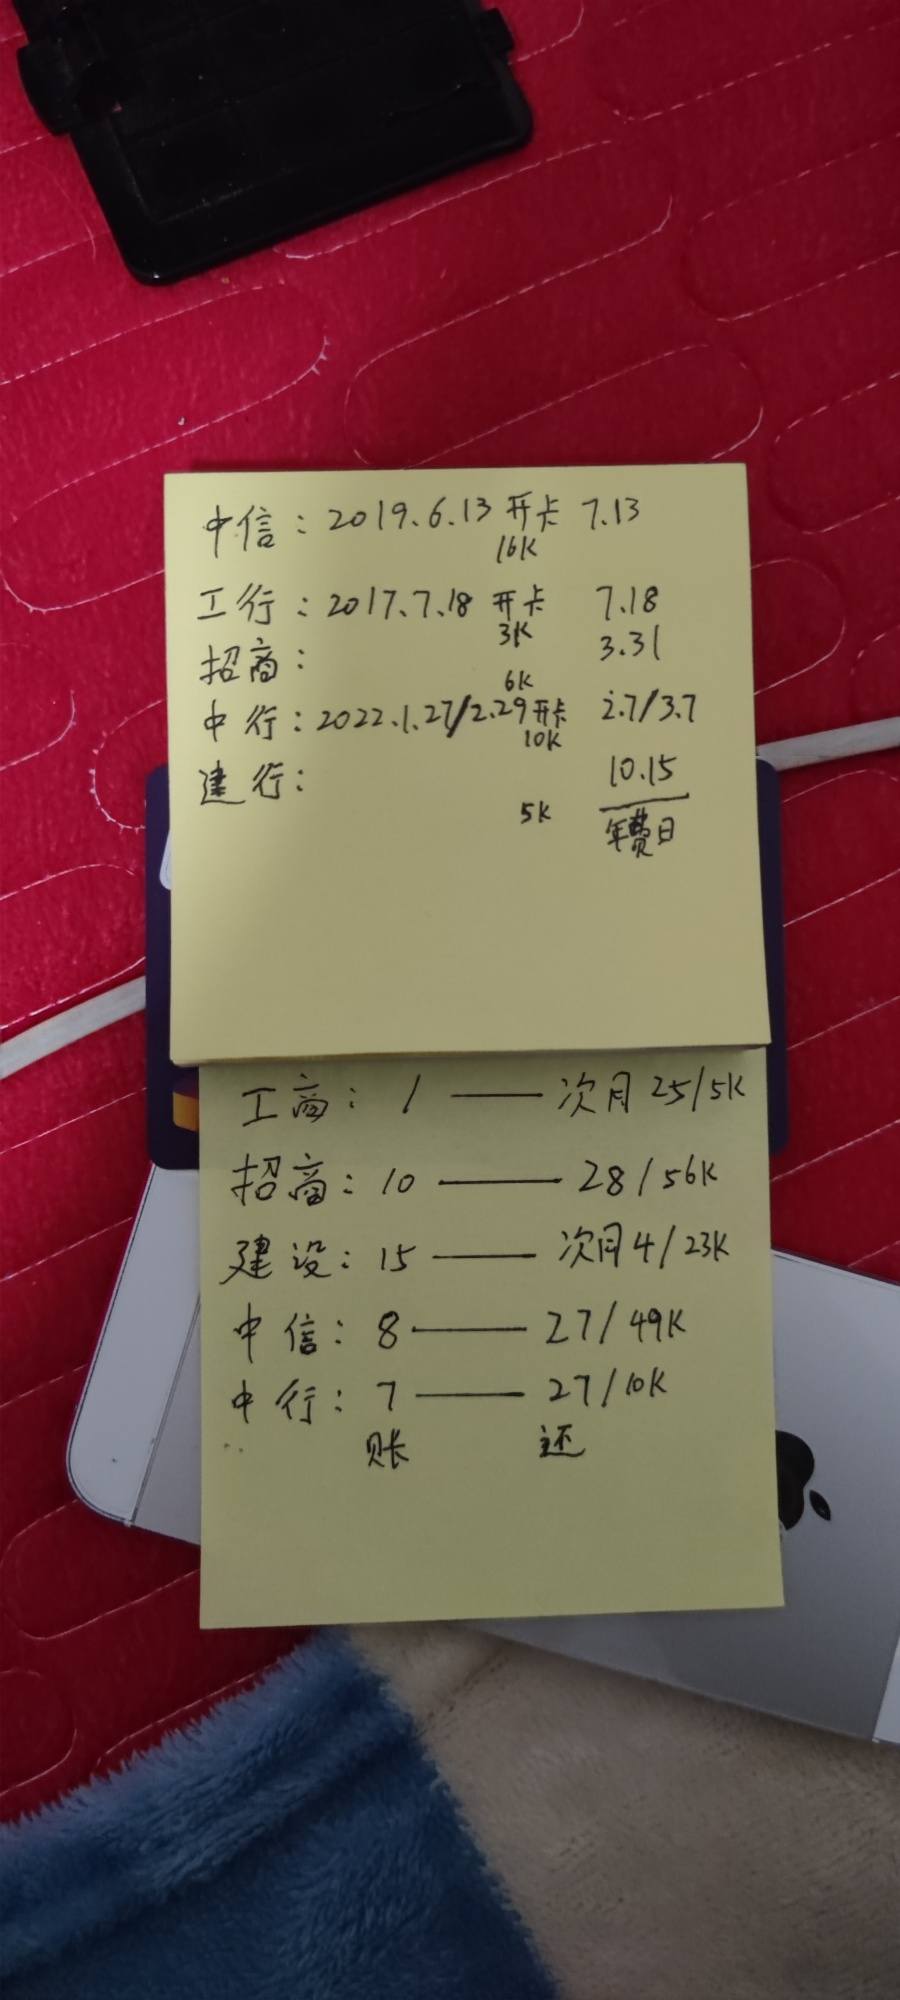 中信：2019.6.13 开卡 7.13
16K
工行：2017.7.18 开卡 7.18
3K
招商： 3.31
6K
中行：2022.1.27/2.29开卡 2.7/3.7
10K
建行： 10.15
5K 年费日
工商：1 —— 次月 25/5K
招商：10 —— 28/56K
建设：15 —— 次月4/23K
中信：8 —— 27/49K
中行：7 —— 27/10K
账 还